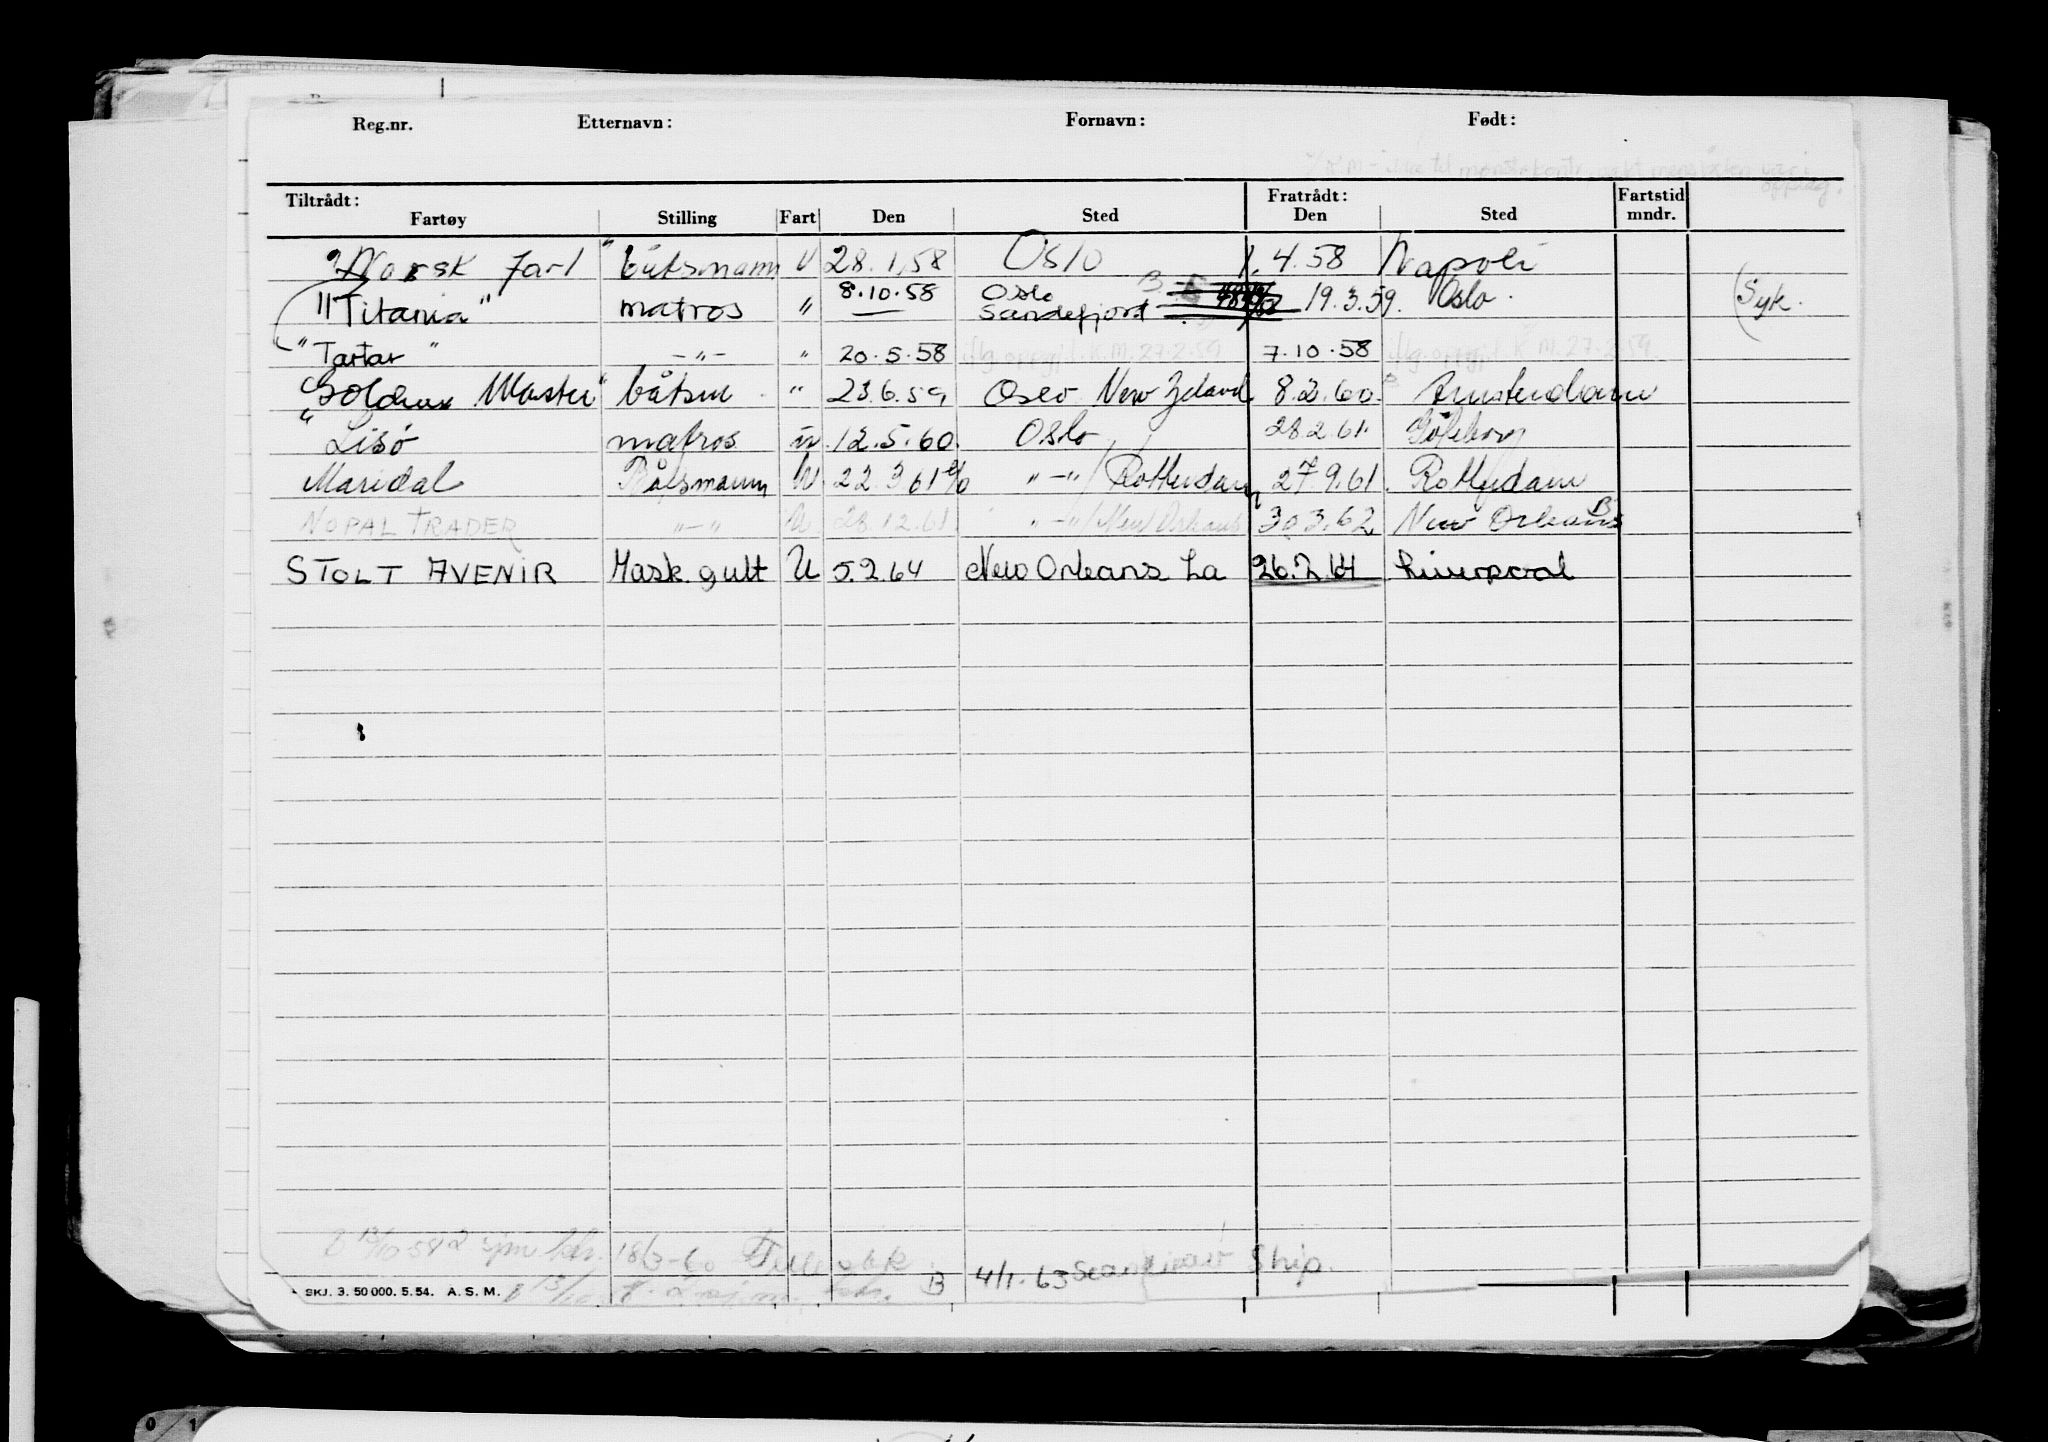 Reg.nr. Etternavn: Fornavn: Født:
Tiltrådt: Fratrådt: Fartstid
Fartøy Stilling Fart Den Sted Den Sted mndr.
"Norsk Jarl" båtsmann U 28.1.58 Oslo 1.4.58 Napoli
"Titania" matros " 8.10.58 Oslo Sandefjord 19.3.59. Oslo. (Syk.
"Tartar" -"- " 20.5.58 iflg. oppgift K.M. 27.2.59 7.10.58 iflg. oppgift K.M. 27.2.59.
"Golden Master" båtsm. " 23.6.59 Oslo New Zeland 8.2.60. Amsterdam
"Lisø matros in. 12.5.60. Oslo 28.2.61. Göteborg
Maridal Båtsmann U 22.3.61 "-"/Rotterdam 27.9.61. Rotterdam
NOPAL TRADER "-" U 28.12.61. "-"/New Orleans 30.3.62 New Orleans B
STOLT AVENIR Mask.gutt U 5.2.64 New Orleans La 26.2.64 Liverpool
18/3-60
B 4/1.63 Ship.
SKJ. 3. 50 000. 5. 54. A. S. M.
0 1